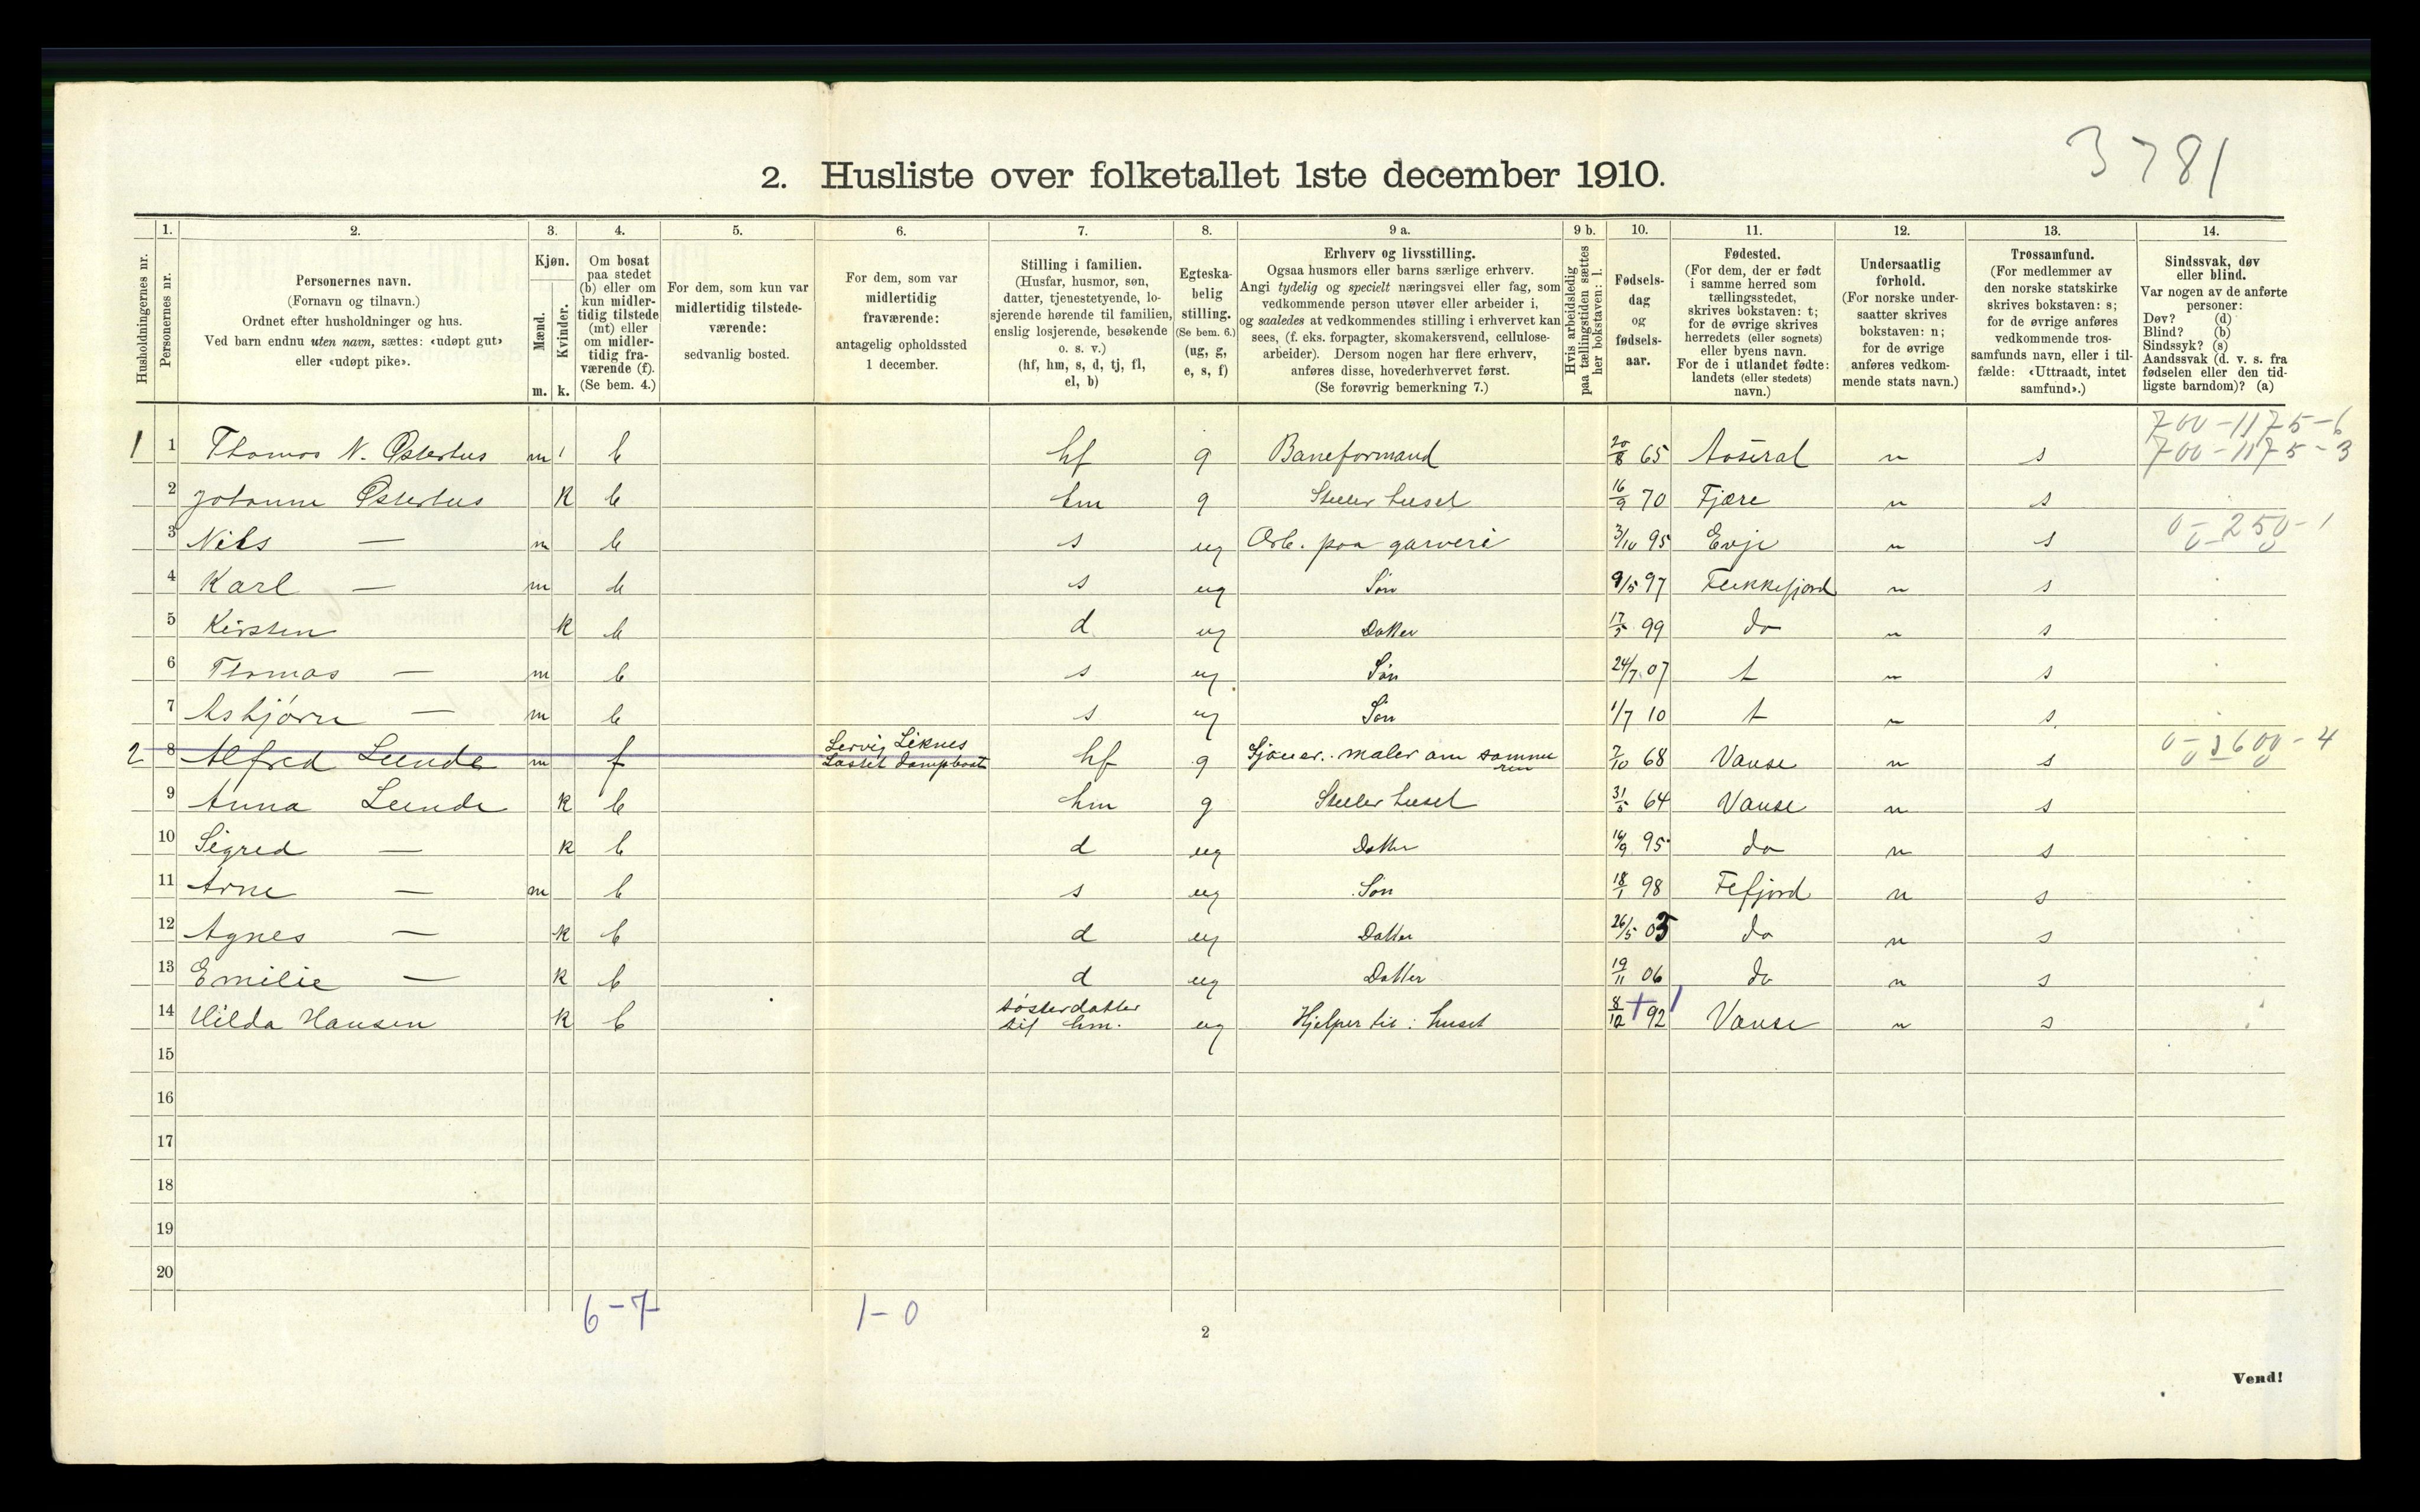 3781
2. Husliste over folketallet 1ste december 1910.
Husholdningernes nr.
1.
Personernes nr.
2.
Personernes navn.
(Fornavn og tilnavn.)
Ordnet efter husholdninger og hus.
Ved barn endnu uten navn, sættes: «udøpt gut»
eller «udøpt pike».
3.
Kjøn.
Mænd.
Kvinder.
m. k.
4.
Om bosat
paa stedet
(b) eller om
kun midler-
tidig tilstede
(mt) eller
om midler-
tidig fra-
værende (f).
(Se bem. 4.)
5.
For dem, som kun var
midlertidig tilstede-
værende:
sedvanlig bosted.
6.
For dem, som var
midlertidig
fraværende:
antagelig opholdssted
1 december.
7.
Stilling i familien.
(Husfar, husmor, søn,
datter, tjenestetyende, lo-
sjerende hørende til familien,
enslig losjerende, besøkende
o. s. v.)
(hf, hm, s, d, tj, fl,
el, b)
8.
Egteska-
belig
stilling.
(Se bem. 6.)
(ug, g,
e, s, f)
9 a.
Erhverv og livsstilling.
Ogsaa husmors eller barns særlige erhverv.
Angi tydelig og specielt næringsvei eller fag, som
vedkommende person utøver eller arbeider i,
og saaledes at vedkommendes stilling i erhvervet kan
sees, (f. eks. forpagter, skomakersvend, cellulose-
arbeider). Dersom nogen har flere erhverv,
anføres disse, hovederhvervet først.
(Se forøvrig bemerkning 7.)
9 b.
Hvis arbeidsledig
paa tællingstiden sættes
her bokstaven: l.
10.
Fødsels-
dag
og
fødsels-
aar.
11.
Fødested.
(For dem, der er født
i samme herred som
tællingsstedet,
skrives bokstaven: t;
for de øvrige skrives
herredets (eller sognets)
eller byens navn.
For de i utlandet fødte:
landets (eller stedets)
navn.)
12.
Undersaatlig
forhold.
(For norske under-
saatter skrives
bokstaven: n;
for de øvrige
anføres vedkom-
mende stats navn.)
13.
Trossamfund.
(For medlemmer av
den norske statskirke
skrives bokstaven: s;
for de øvrige anføres
vedkommende tros-
samfunds navn, eller i til-
fælde: «Uttraadt, intet
samfund».)
14.
Sindssvak, døv
eller blind.
Var nogen av de anførte
personer:
Døv? (d)
Blind? (b)
Sindssyk? (s)
Aandssvak (d. v. s. fra
fødselen eller den tid-
ligste barndom)? (a)
700-1175-6
1 1 Thomas N. Østerhus m b hf g Baneformand 20/8 65 Aaseral n s 700-1175-3
2 Johanne Østerhus k b hm g Steller huset 16/9 70 Fjære n s
3 Nils — m b s ug Arb. paa garveri 3/10 95 Evje n s 0-250-1
4 Karl — m b s ug Søn 9/5 97 Flekkefjord n s
5 Kirsten k b d ug Datter 17/5 99 do n s
6 Thomas — m b s ug Søn 24/7 07 t n s
7 Asbjørn — m b s ug Søn 1/7 10 t n s
2 8 Alfred Lunde m f Liknes dampbaat hf g maler om somme ren 7/10 68 Vanse n s 0-1600-4
9 Anna Lunde k b hm g Steller huset 31/5 64 Vanse n s
10 Sigred — k b d ug Datter 16/9 95 do n s
11 Arne — m b s ug Søn 18/1 98 Fefjord n s
12 Agnes — k b d ug Datter 26/5 03 do n s
13 Emilie — k b d ug Datter 19/11 06 do n s
14 Hilda Hansen k b søsterdatter til hm. ug Hjelper til i huset 8/12 92 Vanse n s
15
16
17
18
19
20
6-7 1-0
2
Vend!